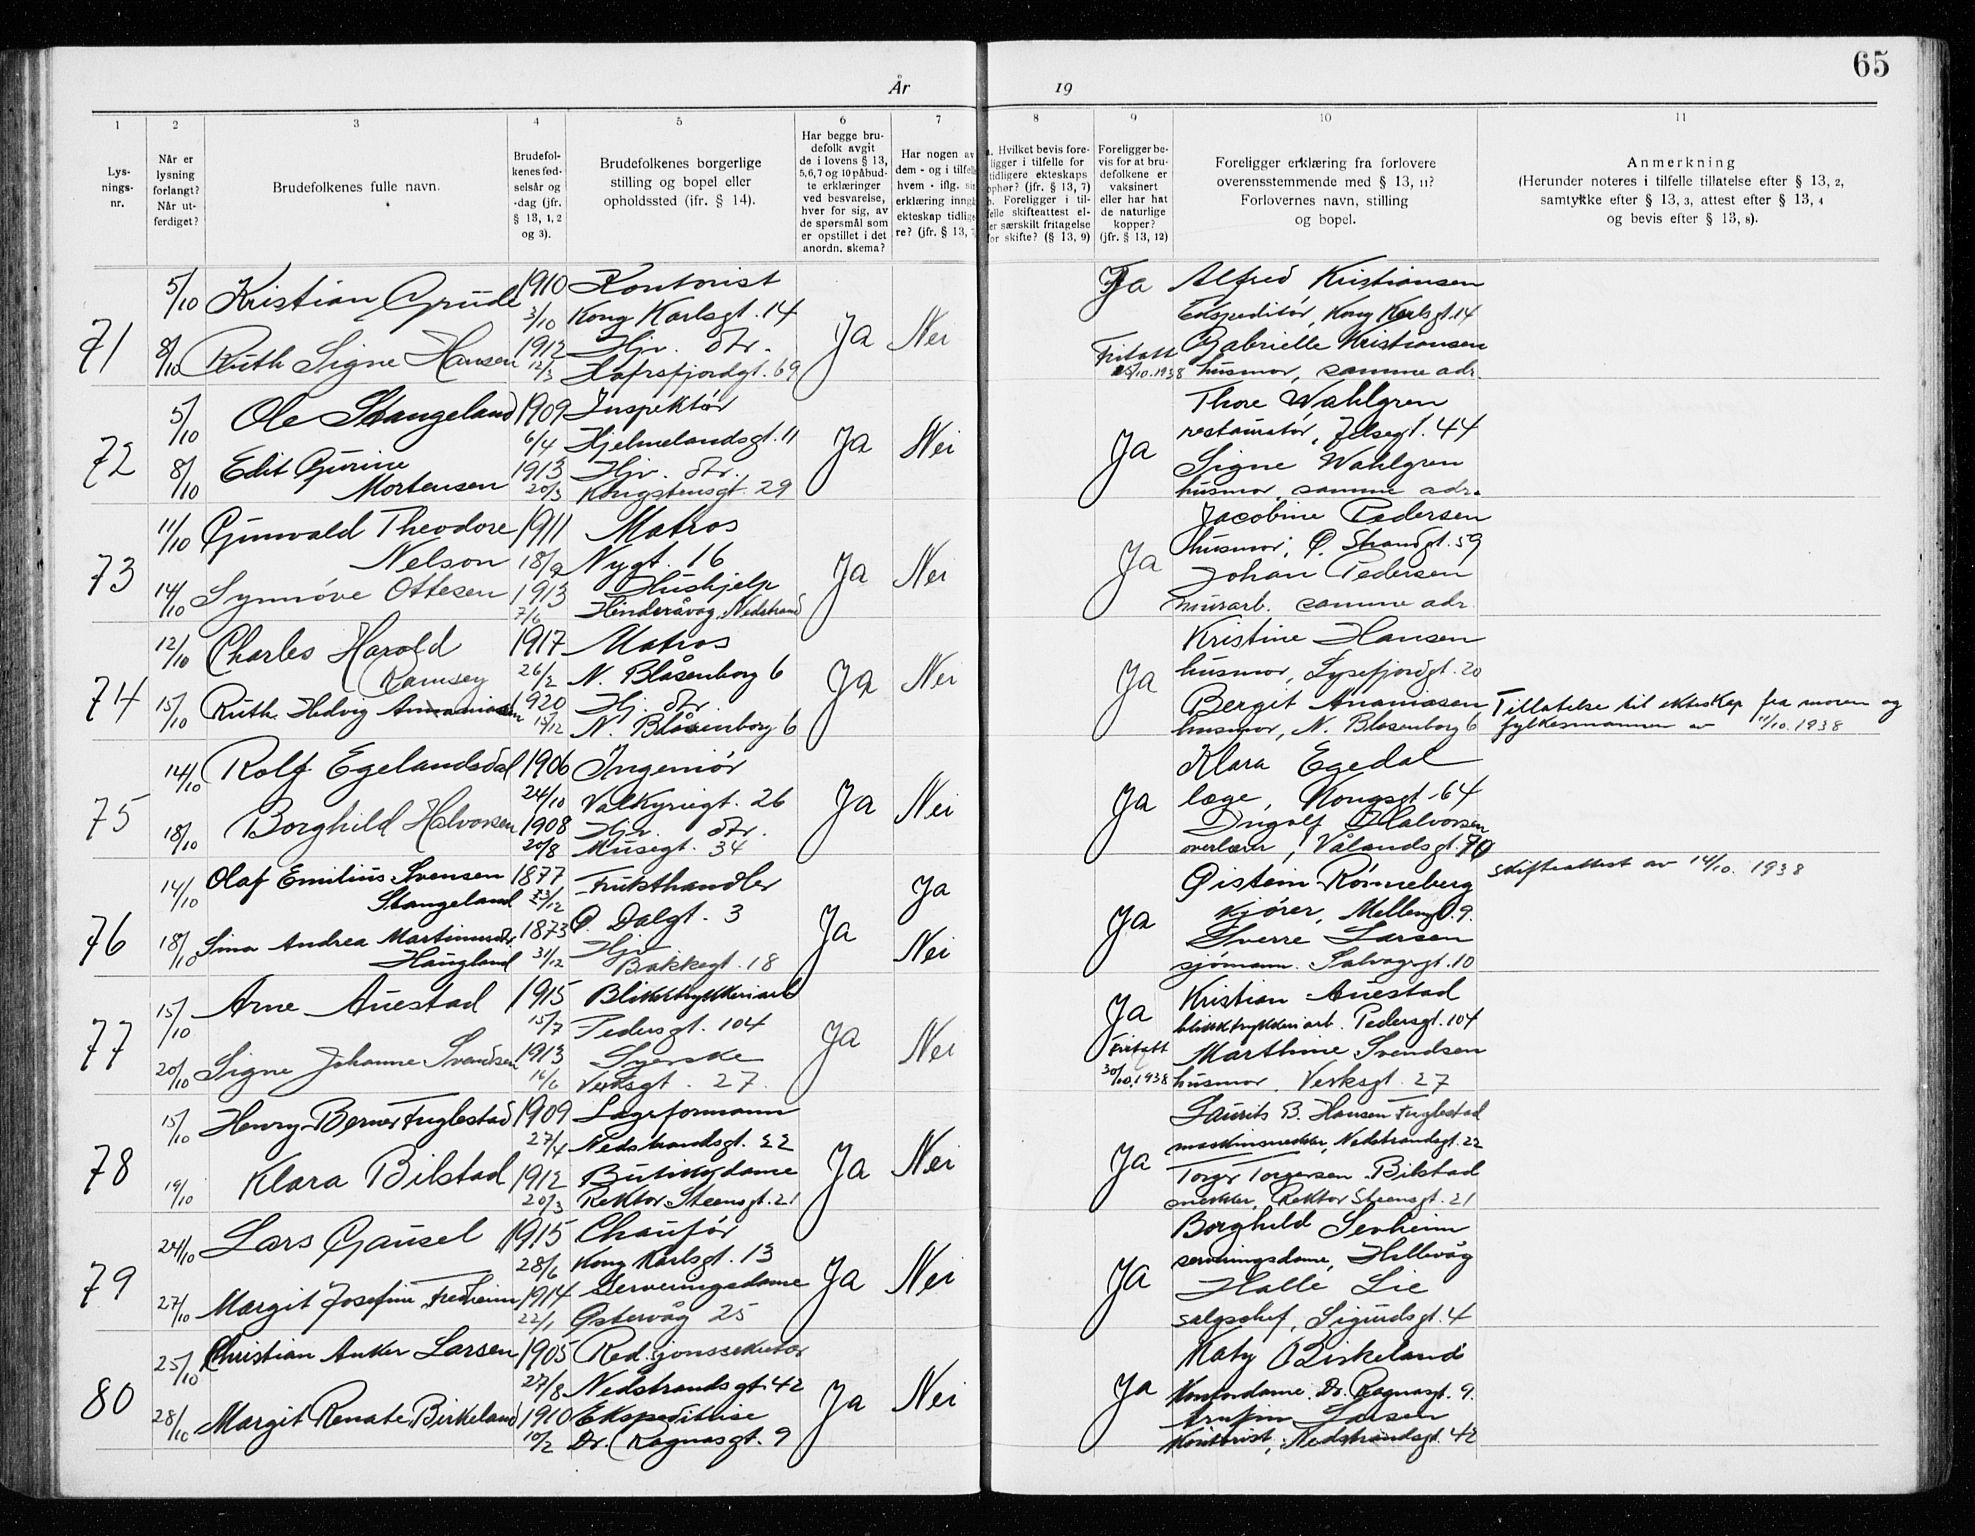 65
År 19
1 2 3 4 5 6 7 8 9 10 11
Lys-
nings-
nr.
Når er
lysning
forlangt?
Når ut-
ferdiget?
Brudefolkenes fulle navn.
Brudefol-
kenes fød-
selsår og
-dag (jfr.
§ 13, 1, 2
og 3).
Brudefolkenes borgerlige
stilling og bopel eller
opholdssted (ifr. § 14).
Har begge bru-
defolk avgit
de i lovens § 13,
5,6,7 og 10 påbud-
te erklæringer
ved besvarelse,
hver for sig, av
de spørsmål som
er opstillet i det
anordn. skema?
Har nogen av
dem - og i tilfelle
hvem - iflg.
erklæring inngå
ekteskap tidlige
re? (jfr. § 13,
a. Hvilket bevis fore-
ligger i tilfelle for
tidligere ekteskaps
ophør? (jfr. § 13, 7)
b. Foreligger i til-
felle skifteattest el-
ler særskilt fritagelse
for skifte? (§ 13, 9)
Foreligger be-
vis for at bru-
defolkene er
vaksinert
eller har hat
de naturlige
kopper?
(jfr. § 13, 12)
Foreligger erklæring fra forlovere
overensstemmende med § 13, 11?
Forlovernes navn, stilling
og bopel.
Anmerkning
(Herunder noteres i tilfelle tillatelse efter § 13, 2,
samtykke efter § 13, 3, attest efter § 13, 4
og bevis efter § 13, 8).
71 5/10 Kristian Grude 1910 Kontorist Ja Nei Ja Alfred Kristiansen
3/10 Kong Karlsgt. 14 Ekspeditør, Kong Karlsgt. 14
8/10 Ruth Signe Hansen 1912 Hjv. dtr. Fritatt Gabrielle Kristiansen
12/3 Hafrsfjordgt. 69 25/10.1938 husmor, samme adr.
72 5/10 Ole Stangeland 1909 Inspektør Ja Nei Ja Thore Wahlgren
6/4 Hjelmelandsgt. 11 restauratør, Jelsegt. 44
8/10 Edit Gurine 1913 Hjv. dtr. Signe Wahlgren
Mortensen 20/3 Kongstensgt. 29 husmor, samme adr.
73 11/10 Gunvald Theodore 1911 Matros Ja Nei Ja Jacobine Pedersen
Nelson 18/9 Nygt. 16 husmor, Ø. Strandgt. 59
14/10 Synnøve Ottesen 1913 Hushjelp Johan Pedersen
7/6 Hinderåvåg, Nedstrand murarb. samme adr.
74 12/10 Charles Harold 1917 Matros Ja Nei Ja Kristine Hansen
Ramsey 26/2 N. Blåsenborg 6 husmor, Lysefjordgt. 20
15/10 Ruth Hedvig Ananiasen 1920 Hj. dtr. Bergit Ananiasen Tillatelse til ekteskap fra moren og
15/12 N. Blåsenborg 6 husmor, N. Blåsenborg 6 fylkesmannen av 11/10.1938
75 14/10 Rolf Egelandsdal 1906 Ingeniør Ja Nei Ja Klara Egedal
24/10 Valkyriegt. 26 læge, Kongsgt. 64
18/10 Borghild Halvorsen 1908 Hjv. dtr. Ingolf Halvorsen
20/8 Musegt. 34 overlærer, Vålandsgt. 70
76 14/10 Olaf Emilius Svensen 1877 Frukthandler Ja Ja Ja Øistein Rönneberg Skifteattest av 14/10. 1938
Stangeland 23/12 Ø. Dalgt. 3 kjører, Mellemgt. 9.
18/10 Sina Andrea Martinusdtr. 1873 Hjv. Nei Sverre Larsen
Haugland 31/12 Bakkegt. 18 sjømann. Salvagergt. 10
77 15/10 Arne Auestad 1915 Blikktrykkeriarb. Ja Nei Ja Kristian Auestad
15/7 Pedersgt. 104 blikktrykkeriarb. Pedersgt. 104
20/10 Signe Johanne Svendsen 1913 Syerske Fritatt Marthine Svendsen
16/6 Verksgt. 27. 30/10.1938 husmor. Verksgt. 27
78 15/10 Henry Berner Fuglestad 1909 Lagerformann Ja Nei Ja Laurits B. Hansen Fuglestad
27/4 Nedstrandsgt. 22 maskinsnekker, Nedstrandsgt. 22
19/10 Klara Bilstad 1912 Butikkdame Torger Torgersen Bilstad
20/3 Rektor Steensgt. 21 snekker, Rektor Steensgt. 21
79 24/10 Lars Gausel 1915 Chaufør Ja Nei Ja Borghild Sevheim
28/6 Kong Karlsgt. 13 serveringsdame, Hillevåg
27/10 Margit Josefine Fredheim 1914 Serveringsdame Halle Lie
22/1 Østervåg 25 salgschef, Sigurdsgt. 4
80 25/10 Christian Anker Larsen 1905 Red.sjonssekretær Ja Nei Ja Katy Birkeland
27/8 Nedstrandsgt. 42 Kontordame. Dr. Ragnasgt. 9.
28/10 Margit Renate Birkeland 1910 Ekspeditrise Larsen
10/2 Dr. Ragnasgt. 9 Kontorist, Nedstrandsgt. 42